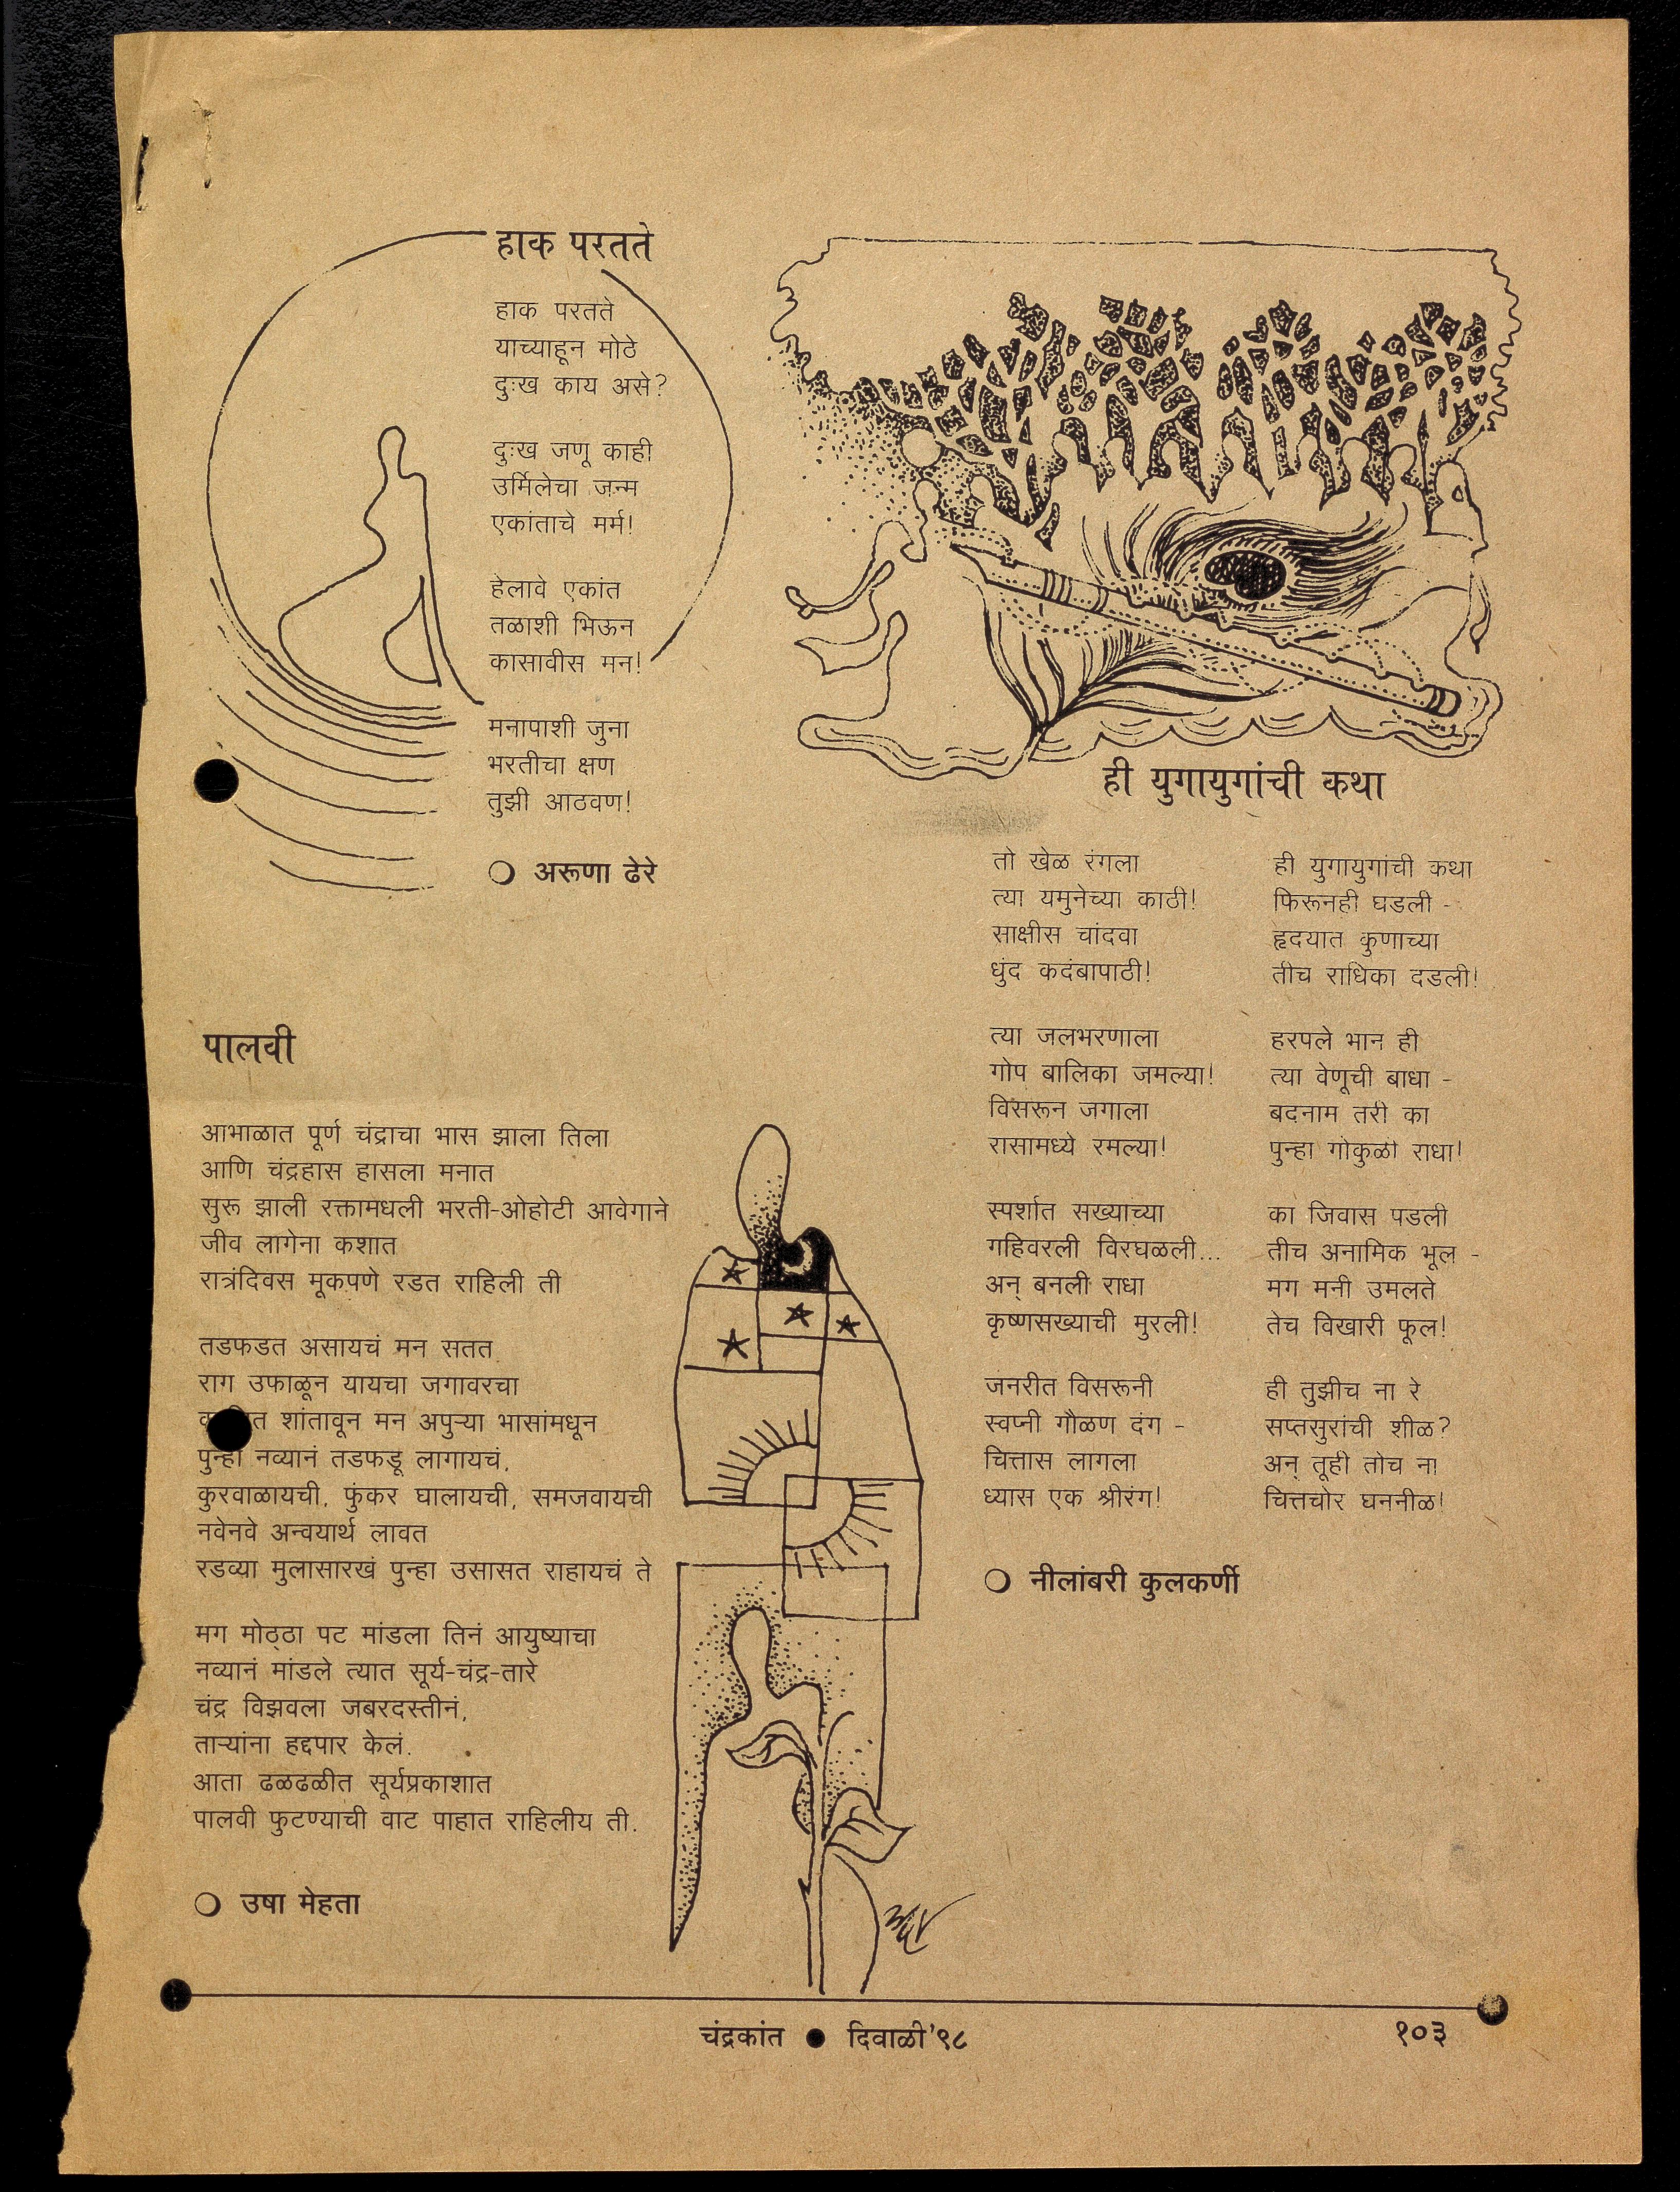 हाक परतते
हाक परतते
याच्याहून मोठे
दुःख काय असे?
दुःख जणू काही
उर्मिलेचा जन्म
एकांताचे मर्म!
हेलावे एकांत
तळाशी भिऊन
कासावीस मन!
मनापाशी जुना
भरतीचा क्षण
तुझी आठवण!
अरूणा ढेरे
पालवी
आभाळात पूर्ण चंद्राचा भास झाला तिला
आणि चंद्रहास हासला मनात
सुरू झाली रक्तामधली भरती-ओहोटी आवेगाने
जीव लागेना कशात
रात्रंदिवस मूकपणे रडत राहिली ती
तडफडत असायचं मन सतत
राग उफाळून यायचा जगावरचा
शांतावून मन अपुऱ्या भासांमधून
पुन्हा नव्यानं तडफडू लागायचं.
कुरवाळायची, फुंकर घालायची, समजवायची
नवेनवे अन्वयार्थ लावत
रडव्या मुलासारखं पुन्हा उसासत राहायचं ते
मग मोठ्ठा पट मांडला तिनं आयुष्याचा
नव्यानं मांडले त्यात सूर्य-चंद्र-तारे
चंद्र विझवला जबरदस्तीनं,
ताऱ्यांना हद्दपार केलं.
आता ढळढळीत सूर्यप्रकाशात
पालवी फुटण्याची वाट पाहात राहिलीय ती.
उषा मेहता
ही युगायुगांची कथा
तो खेळ रंगला
त्या यमुनेच्या काठी!
साक्षीस चांदवा
धुंद कदंबापाठी!
त्या जलभरणाला
गोप बालिका जमल्या!
विसरून जगाला
रासामध्ये रमल्या!
स्पर्शात सख्याच्या
गहिवरली विरघळली...
अन् बनली राधा
कृष्णसख्याची मुरली!
जनरीत विसरूनी
स्वप्नी गौळण दंग -
चित्तास लागला
ध्यास एक श्रीरंग!
ही युगायुगांची कथा
फिरूनही घडली -
हृदयात कुणाच्या
तीच राधिका दडली!
हरपले भान ही
त्या वेणूची बाधा -
बदनाम तरी का
पुन्हा गोकुळी राधा!
का जिवास पडली
तीच अनामिक भूल -
मग मनी उमलते
तेच विखारी फूल!
ही तुझीच ना रे
सप्तसुरांची शीळ?
अन् तूही तोच ना
चित्तचोर घननीळ!
नीलांबरी कुलकर्णी
चंद्रकांत ● दिवाळी'९८
१०३